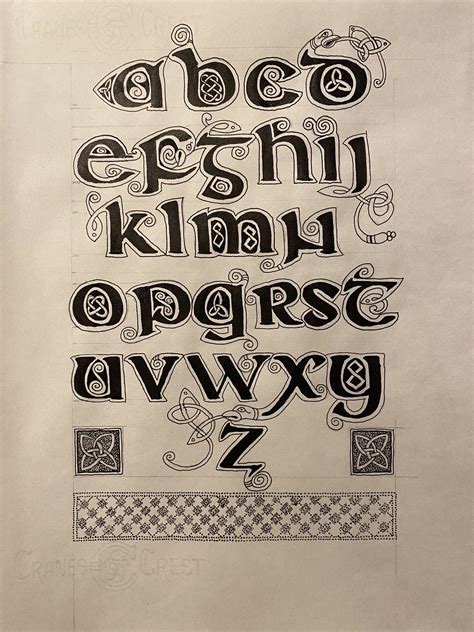 CRANES CREST
abcd
efghij
klmn
opqrst
uvwxy
z
CRANES CREST